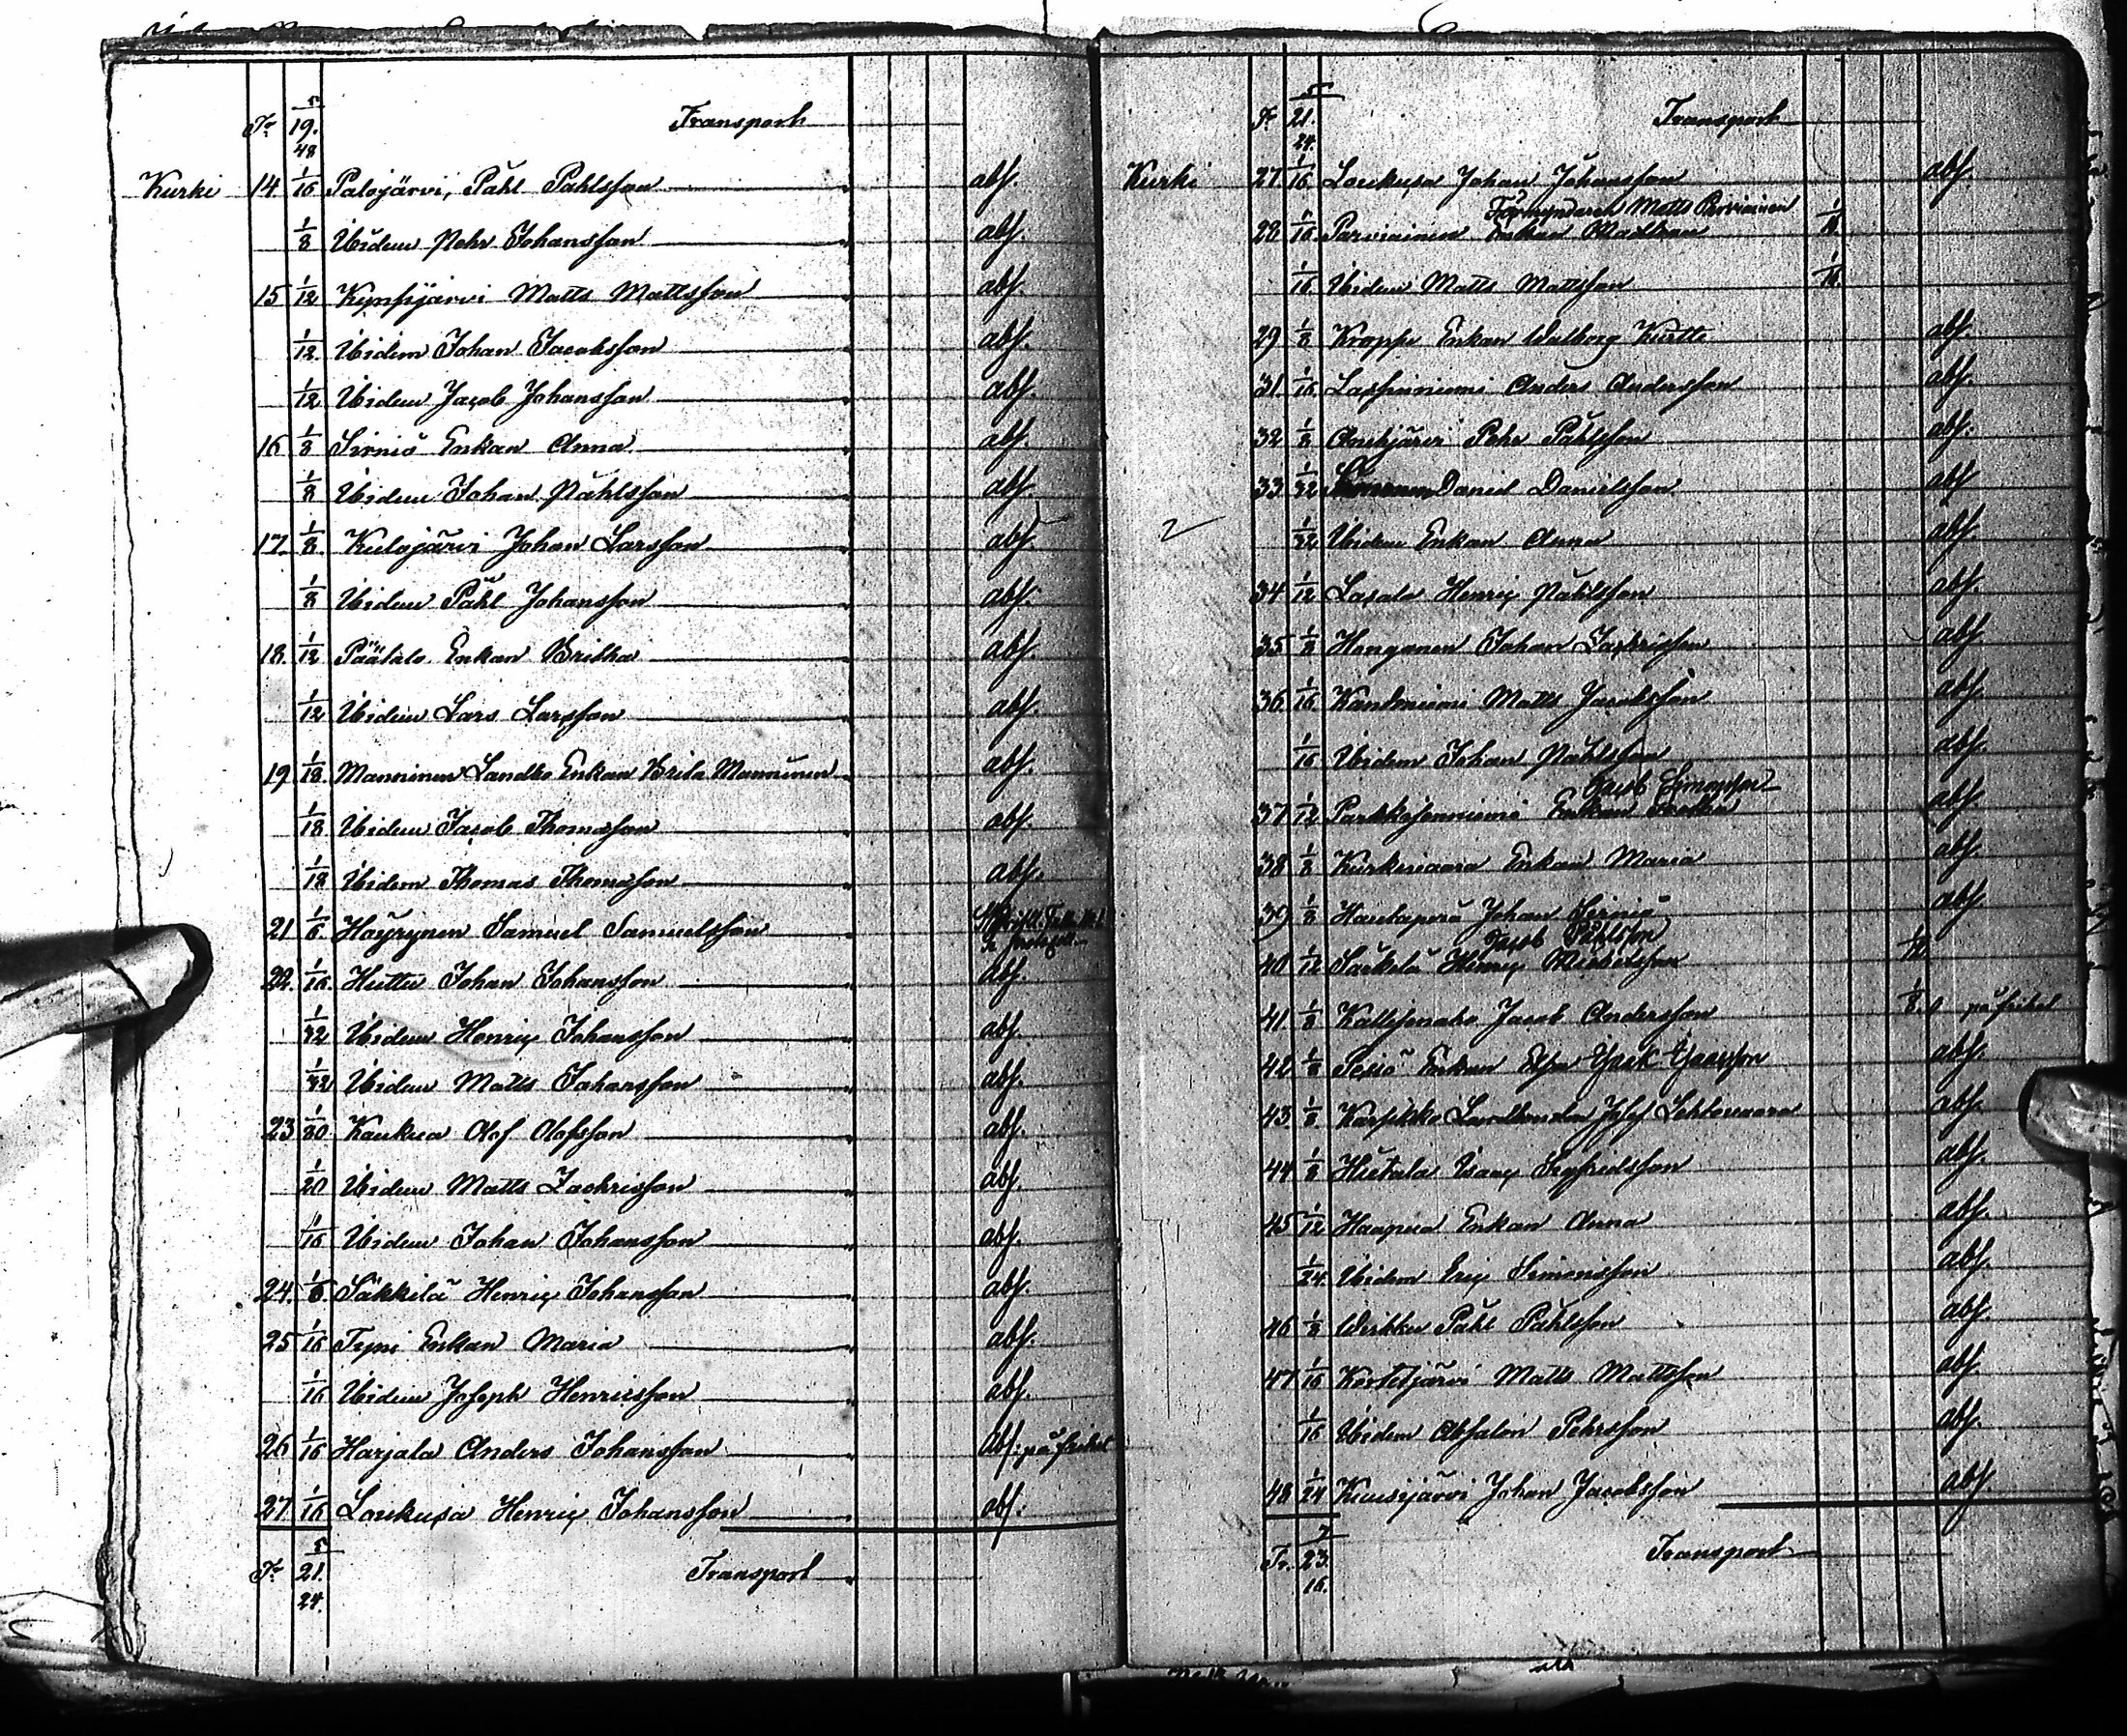 Tr 19. 5/48 Transport
Kurki 14 1/16 Palojärvi, Påhl Påhlsson abs.
1/8 Ibidem Pehr Johansson abs.
15 1/12 Kynsijärvi Matts Mattsson abs.
1/12 Ibidem Johan Jacobsson abs.
1/12 Ibidem Jacob Johansson abs.
16 1/8 Sirniö Enkan Anna abs.
1/8 Ibidem Johan Påhlsson abs.
17 1/8 Kulojärvi Johan Larsson abs.
1/8 Ibidem Påhl Johansson abs.
18. 1/12 Päätalo Enkan Britha abs.
1/12 Ibidem Lars Larsson abs.
19 1/18 Manninen Landbo Enkan Brita Manninen abs.
1/18 Ibidem Jacob Thomasson abs.
1/18 Ibidem Thomas Thomasson abs.
21 1/6 Häyrynen Samuel Samuelsson
22. 1/16 Huttu Johan Johansson abs.
1/32 Ibidem Henric Johansson abs.
1/32 Ibidem Matts Johansson abs.
23 1/80 Kaukua Olof Olofsson abs.
1/20 Ibidem Matts Zachrisson abs.
1/16 Ibidem Johan Johansson abs.
24. 1/6 Säkkilä Henric Johansson abs.
25 1/16 Tyni Enkan Maria abs.
1/16 Ibidem Joseph Henricsson abs.
26 1/16 Harjala Anders Johansson abs. på frihet
27 1/16 Loukusa Henric Johansson abs.
Tr 21. 5/24. Transport
Tr 21. 5/24. Transport
Kurki 27 1/16 Loukusa Johan Johansson abs.
Förmyndaren Matts Parviainen
28 1/16 Parviainen Enkan 1/16
1/16 Ibidem Matts Mattsson 1/16.
29 1/8 Kroppi Enkan Walborg Kurtti abs.
31. 1/16 Anders Andersson abs.
32 1/8 Pehr Påhlsson abs.
33 1/32 Daniel Danielsson abs
2 1/32 Ibidem Enkan Anna abs.
34 1/12 Lasala Henric Påhlsson abs.
35 1/8 Honganen Johan Zachrisson abs.
36. 1/16 Kantoniemi Matts Jacobsson abs.
1/16 Ibidem Johan Påhlsson abs.
Jacob Simonsson
37 1/12 Parkkisenniemi Enkan abs.
38 1/8 Kurkivaara Enkan Maria abs.
39 1/8 Hautaperä Johan Sirniö abs.
Jacob Påhlsson
40 1/12 Särkelä Henric Michelsson 1/12.
41 1/8 Kallisenaho Jacob Andersson 1/8. på frihet
42 1/8 Pesiö Enkan Isak Isaksson abs.
43. 1/8 Karpikko Landbonden Lehtovaara abs.
44 1/8 Hietala Isac Sigfridsson abs.
45 1/12 Haapua Enkan Anna abs.
1/24. Ibidem Eric Simonsson abs.
46 1/8 Wirkku Påhl Påhlsson abs.
47 1/16 Kortetjärvi Matts Mattsson abs.
1/16 Ibidem Absalon Pehrsson abs.
48 1/24 Kuusijärvi Johan Jacobsson abs.
Tr. 23. 7/16. Transport